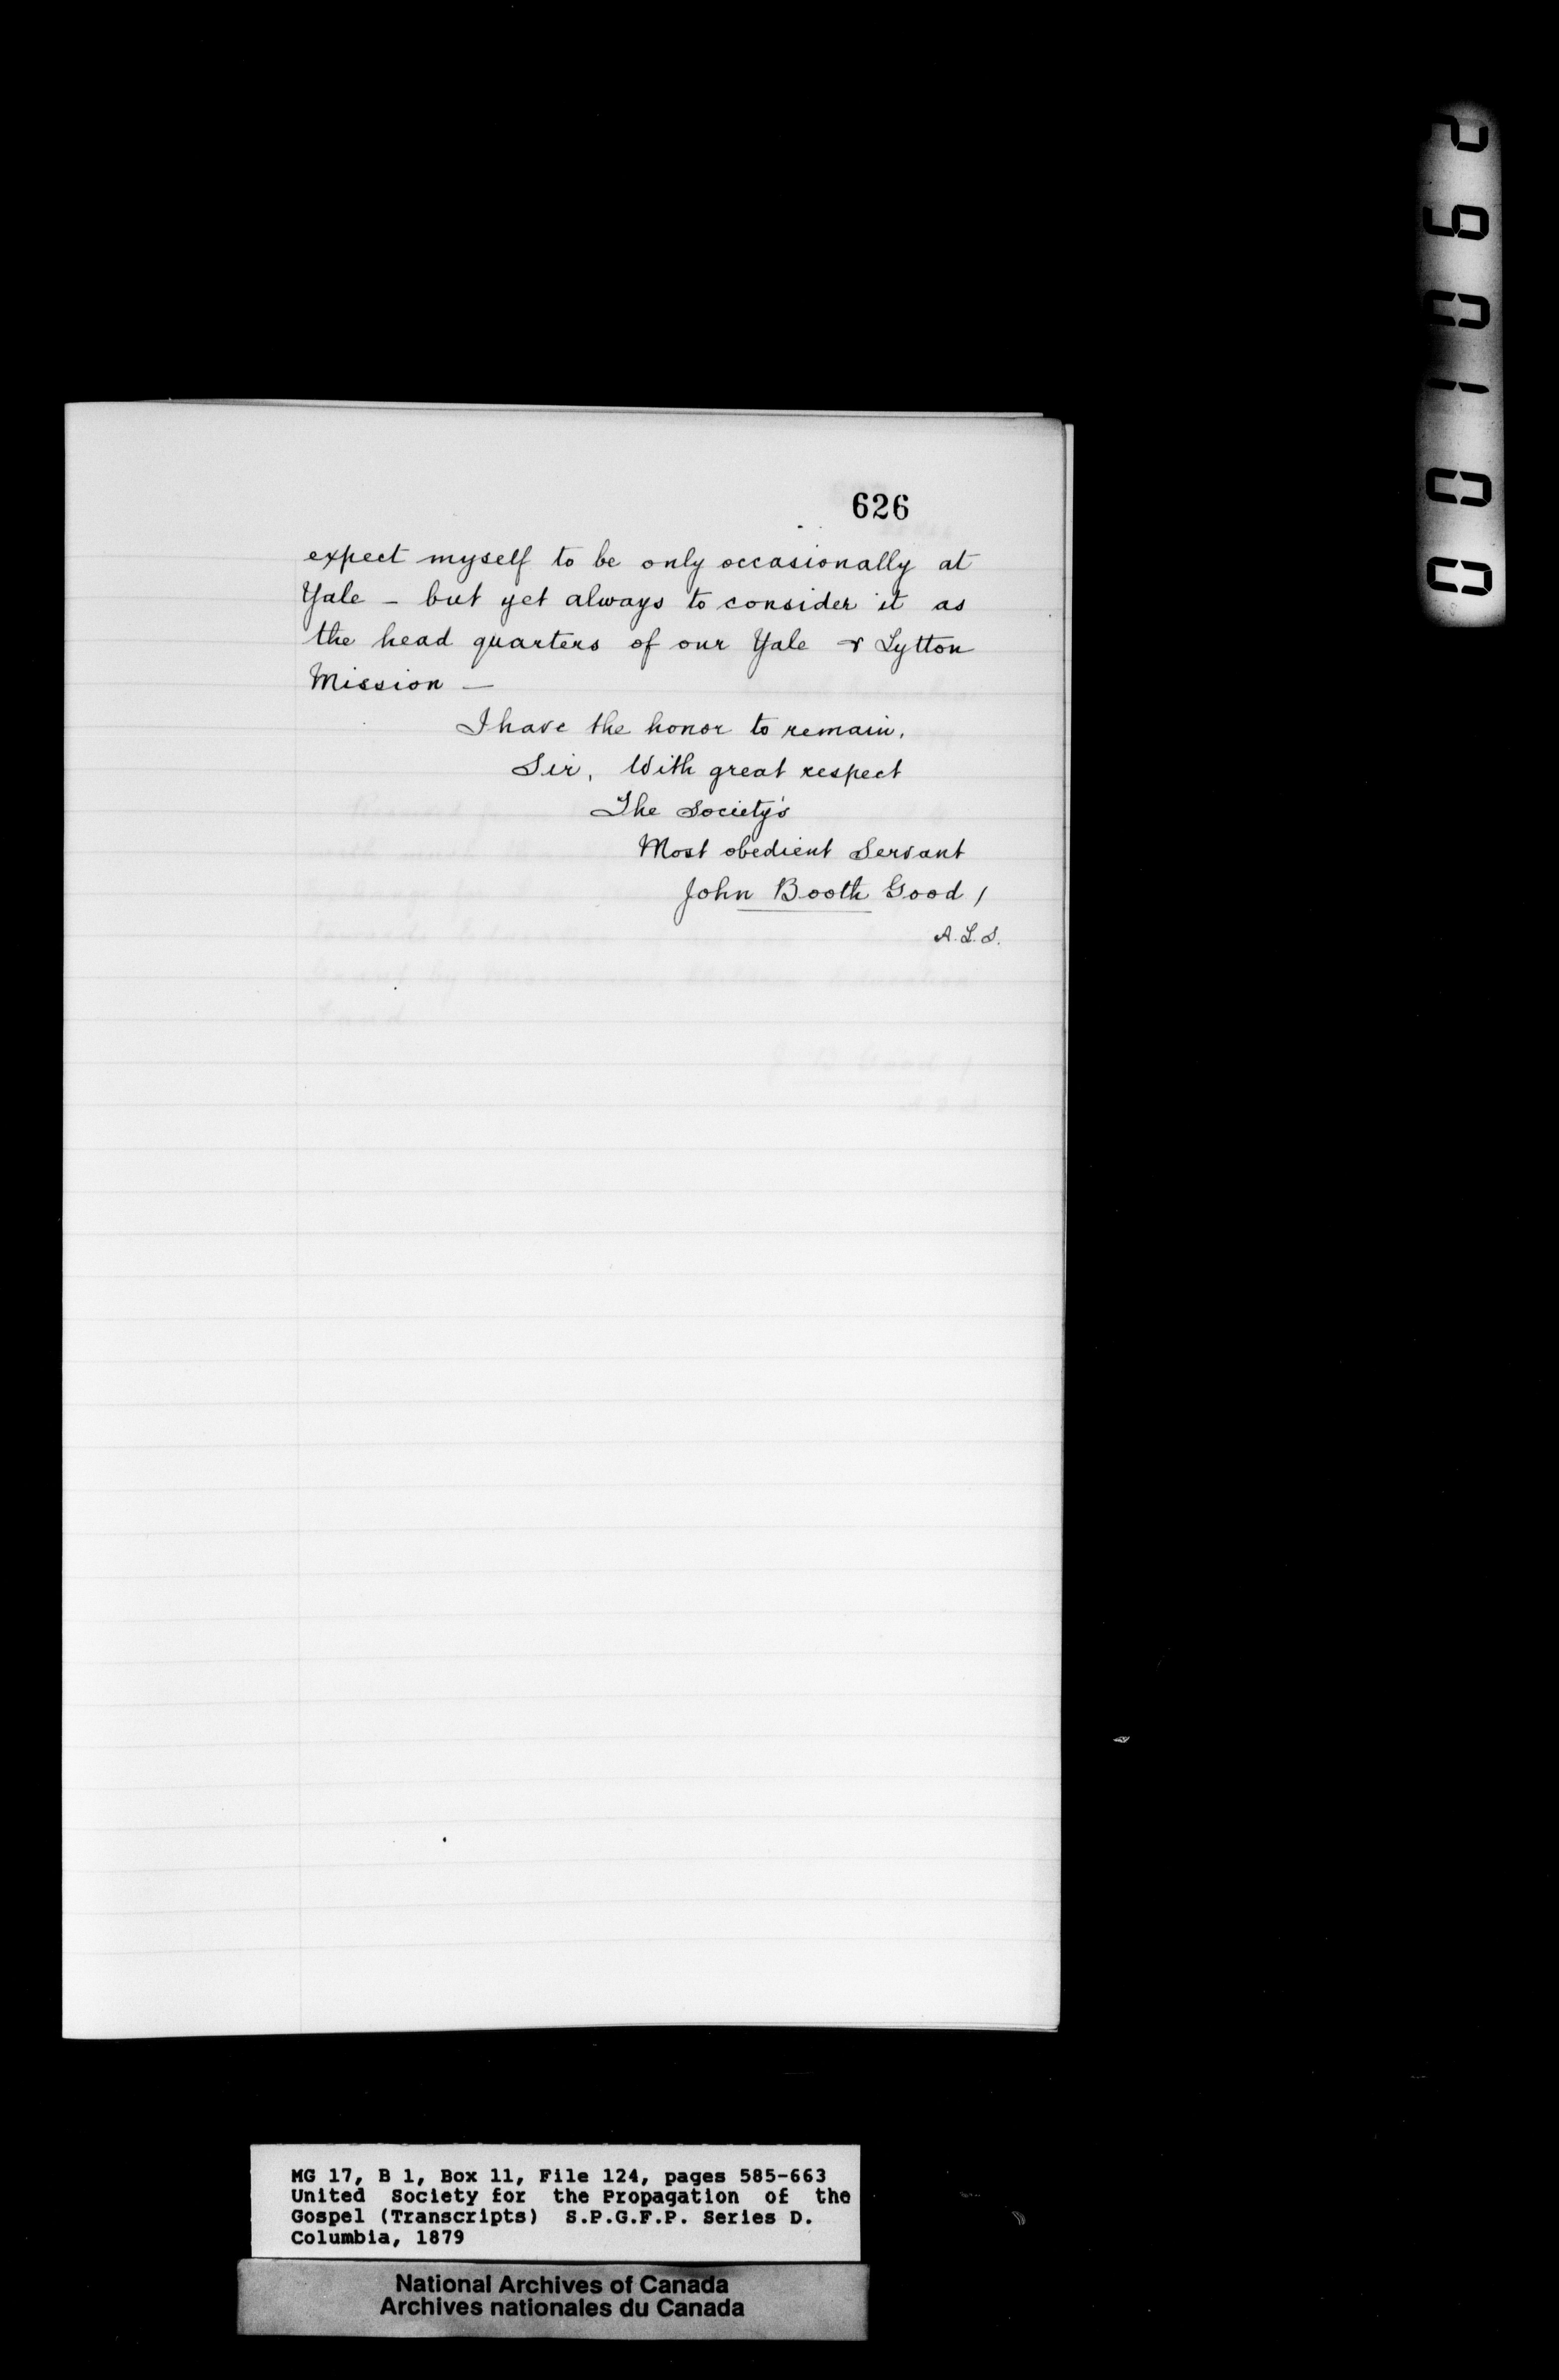 626
expect myself to be only occasionally at
Yale – but yet always to consider it as
the head quarters of our Yale & Lytton
Mission —
I have the honor to remain,
Sir, With great respect
The Society's
Most obedient Servant
John Booth Good /
A.L.S.
MG 17, B 1, Box 11, File 124, pages 585-663
United Society for the Propagation of the
Gospel (Transcripts) S.P.G.F.P. Series D.
Columbia, 1879
National Archives of Canada
Archives nationales du Canada
001062